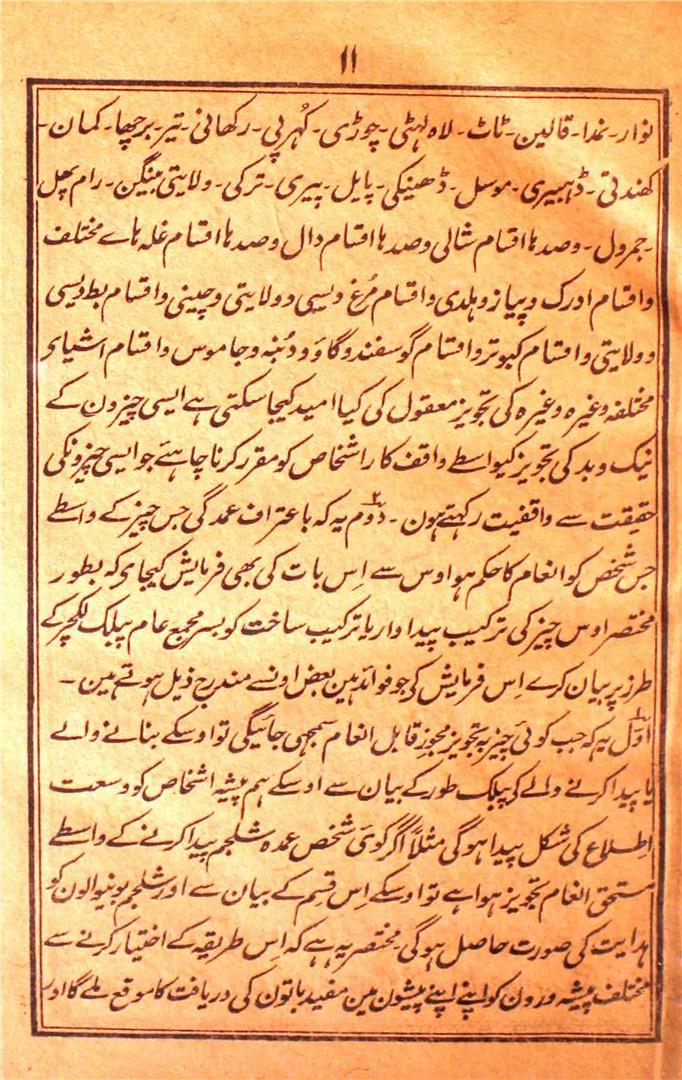 ۱۱
نوار۔ غدا۔ قالین۔ ٹاٹ۔ لاہ لہٹی۔ چوڑی۔ کُہرپی۔ رکھانی۔ تیر۔ برچھا۔ کمان۔
کھندتی۔ ڈہبیری۔ موسل۔ ڈھینکی۔ پایل۔ پیری۔ ترکی۔ ولایتی بینگن۔ رام پھل
۔جمرول۔ وصدہا اقسام شالی وصدہا اقسام دال وصدہا اقسام غلہ ہاے مختلف
واقسام ادرک وپیاز وہلدی واقسام مُرغ دیسی وولایتی وچینی واقسام بط دیسی
وولایتی واقسام کبوتر واقسام گوسفند وگاؤ ودُنبہ وجاموس واقسام اشیای
مختلفہ وغیرہ وغیرہ کی تجویز معقول کی کیا امید کیجا سکتی ہے ایسی چیزون کے
نیک وبد کی تجویز کیواسطے واقف کار اشخاص کو مقرر کرنا چاہئے جو ایسی چیزونکی
حقیقت سے واقفیت رکہتے ہون۔ دوم ۲ یہ کہ باعتراف عمدگی جس چیز کے واسطے
جس شخص کو انعام کا حکم ہو اوس سے اِس بات کی بھی فرمایش کیجای کہ بطور
مختصر اوس چیز کی ترکیب پیداوار یا ترکیب ساخت کو بسر مجمع عام پبلک لکچر کے
طرز پر بیان کرے اِس فرمایش کی جو فوائد ہین بعض اونسے مندرج ذیل ہوتے ہین۔
اوّل ۱ یہ کہ جب کوئی چیز بہ تجویز مجوز قابل انعام سمجہی جائیگی تو اوسکے بنانے والے
یا پیدا کرنے والے کی پبلک طور کے بیان سے اوسکے ہم پیشہ اشخاص کو وسعت
اِطلاع کی شکل پیدا ہوگی مثلاً اگر کوی شخص عمدہ شلجم پیدا کرنے کے واسطے
مستحق انعام تجویز ہوا ہے تو اوسکے اِس قسم کے بیان سے اور شلجم بونیوالون کو
ہدایت کی صورت حاصل ہوگی۔ مختصر یہ ہے کہ اِس طریقہ کے اختیار کرنے سے
مختلف پیشہ ورون کو اپنے اپنے پیشون مین مفید باتون کی دریافت کا موقع ملے گا اور